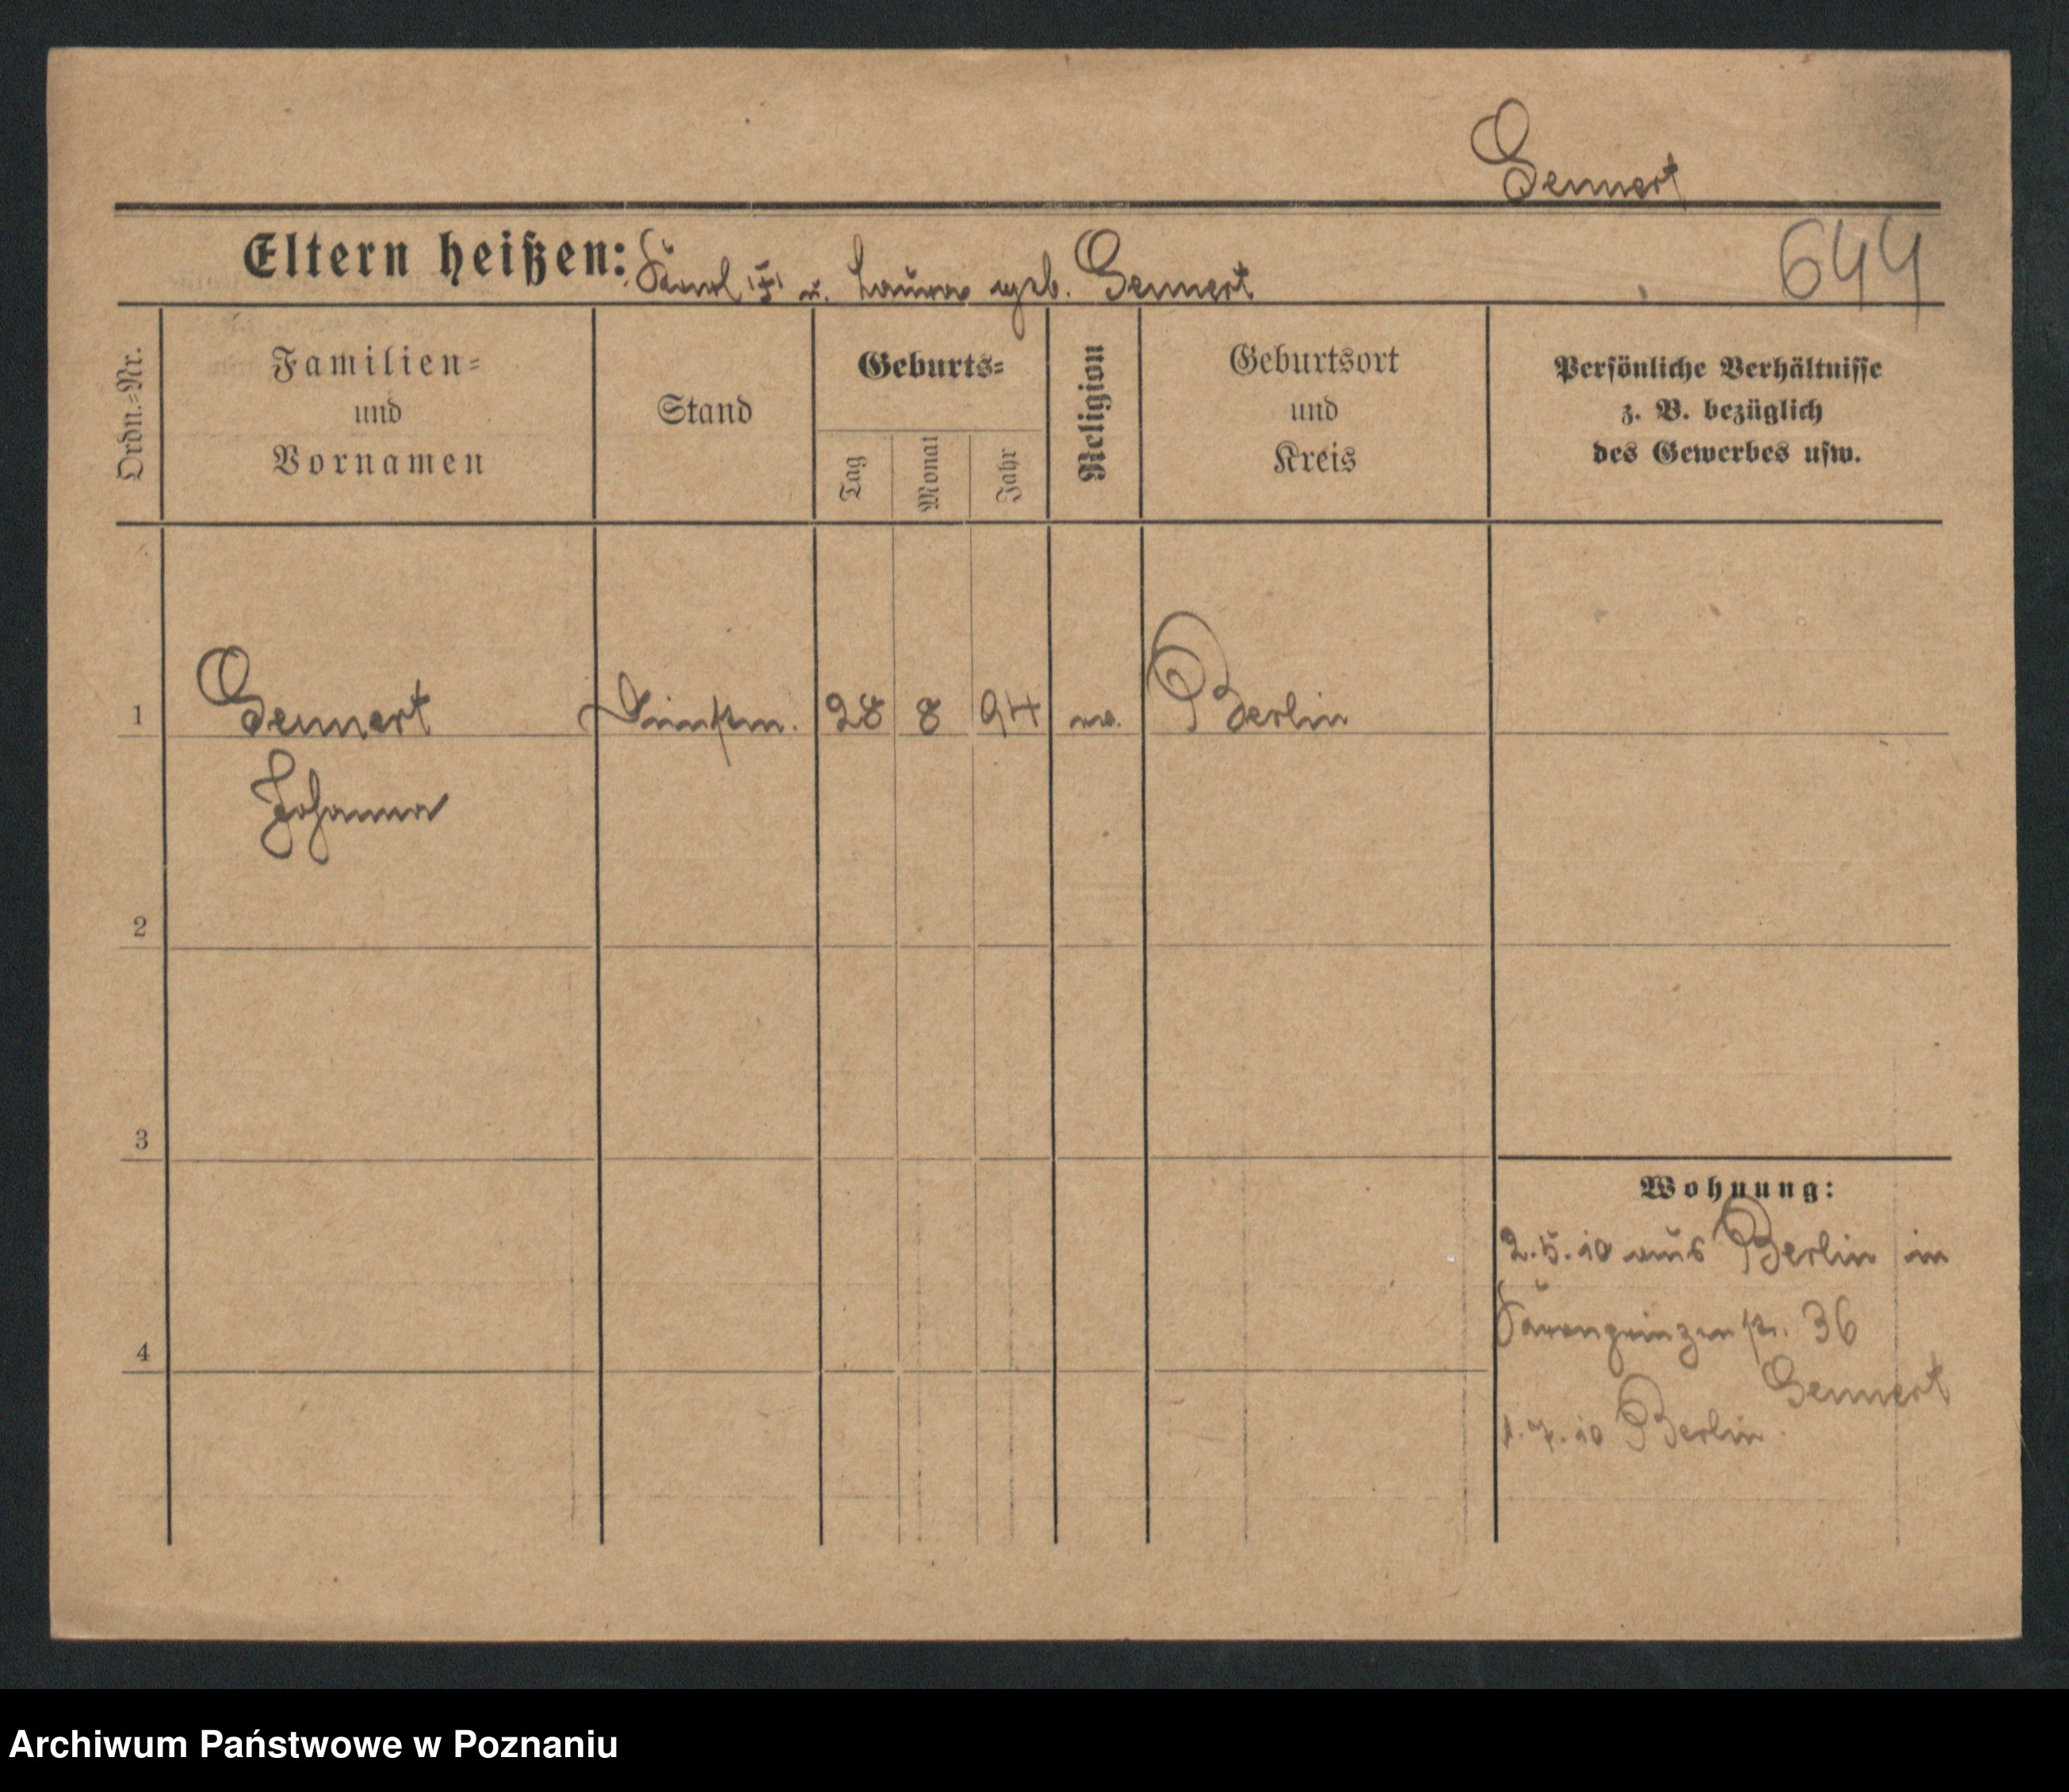 Gennert
Eltern heißen: Karl u. Laura geb. Gennert
644
Ordn.=Nr.
Familien=
und
Vornamen
Stand
Geburts=
Tag
Monat
Jahr
Religion
Geburtsort
und
Kreis
Persönliche Verhältnisse
z. B. bezüglich
des Gewerbes usw.
1 Gennert 28 8 94 Berlin
Johanna
2
3
4
Wohnung:
2.5.10 aus Berlin in
Kronprinzenstr. 36
Gennert
1.7.10 Berlin
Archiwum Państwowe w Poznaniu